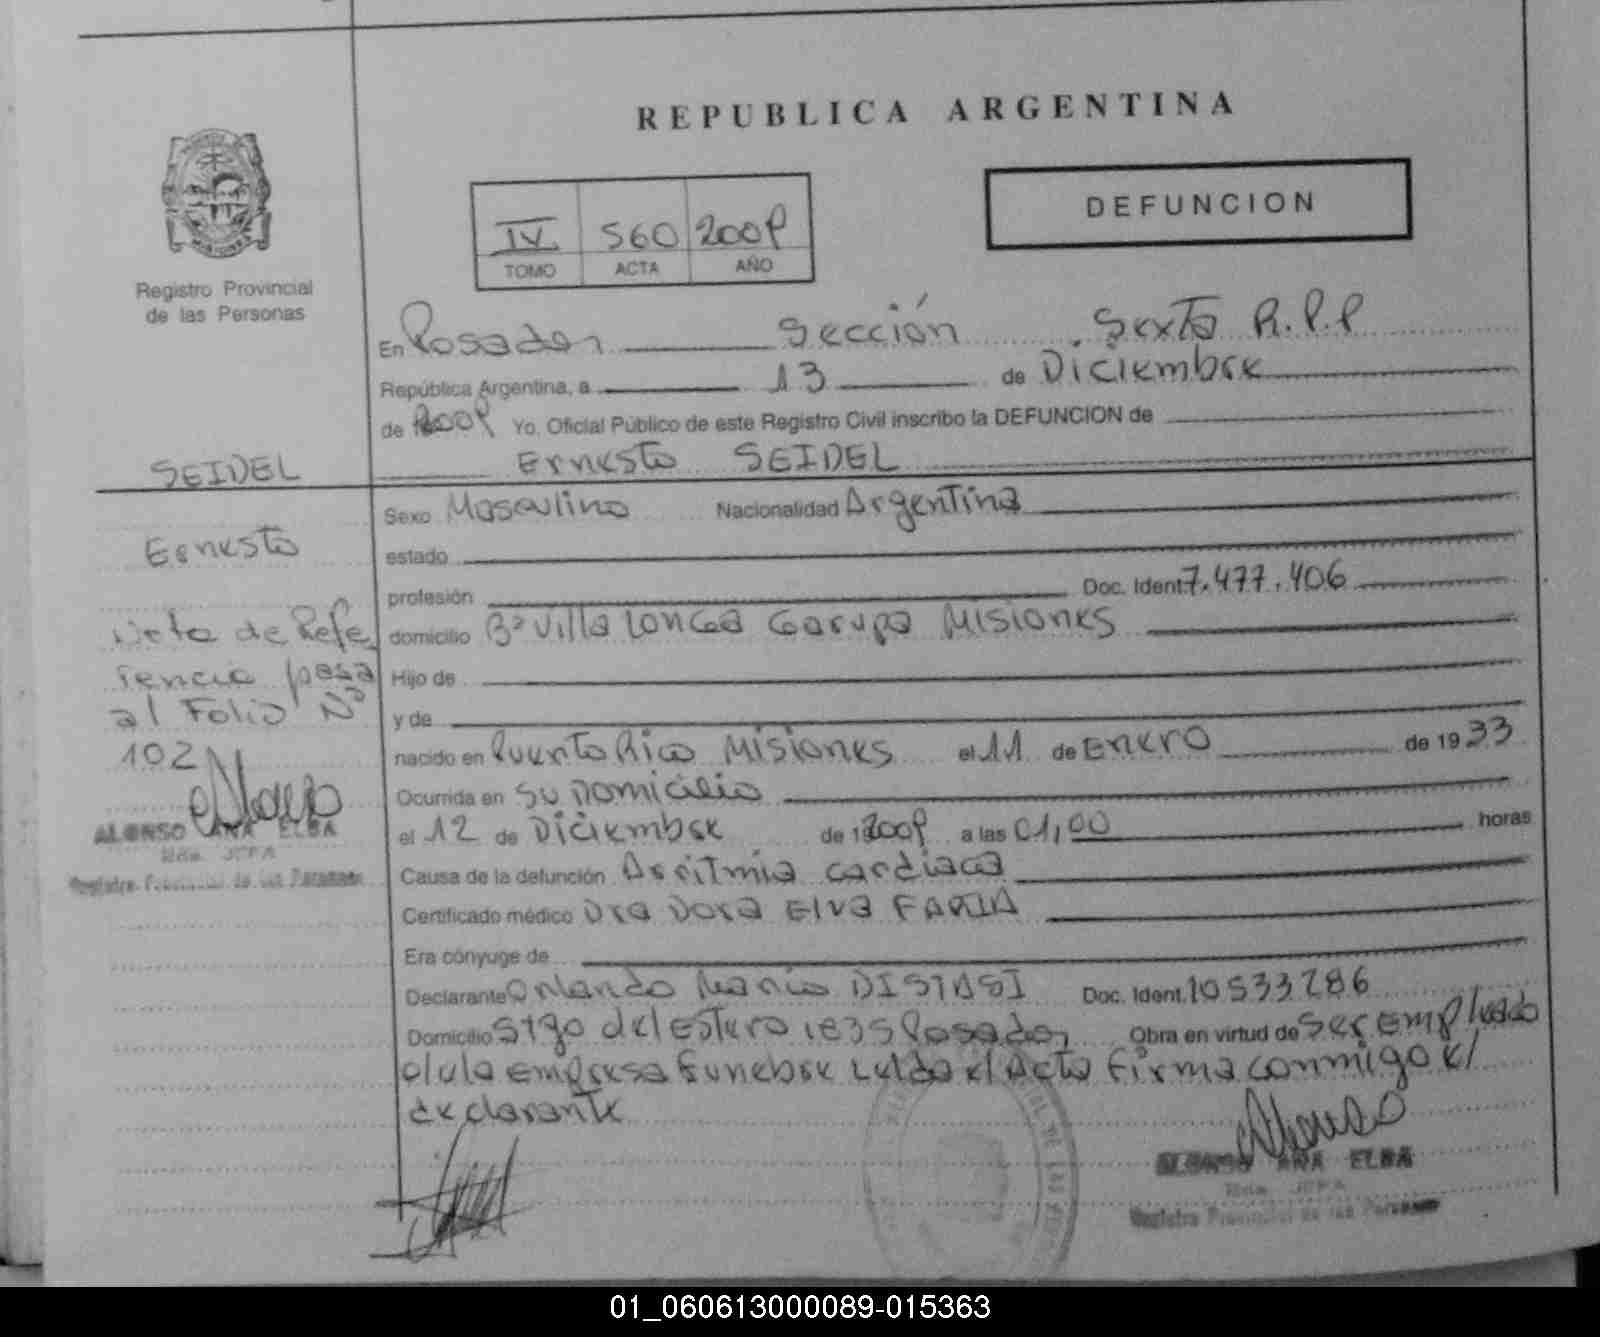 REPUBLICA ARGENTINA
DEFUNCION
IV 560 2009
TOMO ACTA AÑO
Registro Provincial
de las Personas
En Posadas Sección Sexta R.P.P
República Argentina, a 13 de Diciembre
de 2009 Yo, Oficial Público de este Registro Civil inscribo la DEFUNCION de
SEIDEL
Ernesto SEIDEL
Sexo Masculino Nacionalidad Argentina
Ernesto
estado
profesión Doc. Ident. 7.477.406
Nota de Refe
domicilio Bº Villa Longa Garupa Misiones
rencia pasa
Hijo de
al Folio Nº
y de
102
nacido en Puerto Rico Misiones el 11 de Enero de 1933
Ocurrida en su Domicilio
ALONSO ANA ELBA
el 12 de Diciembre de 2009 a las 01,00 horas
Registro Provincial de las Personas
Causa de la defunción Arritmia cardiaca
Certificado médico Dra Dora Elva FARIA
Era cónyuge de
Declarante Orlando Mario DISTASI Doc. Ident. 10533286
Domicilio Stgo del Estero 1835 Posadas Obra en virtud de ser empleado
de la empresa funebre Leida el Acta firma conmigo el
declarante
ALONSO ANA ELBA
Registro Provincial de las Personas
01_060613000089-015363